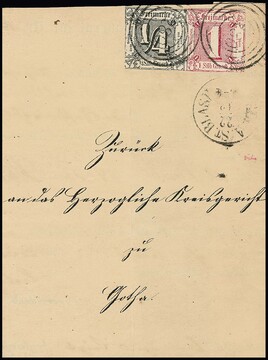 Freimarke Freimarke
1/4 1
ST. BLASII
Zurück
an das Herzogliche Kreisgericht
zu
Gotha.